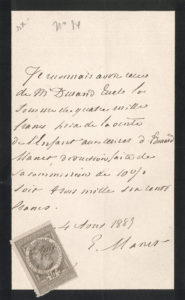 Je reconnais avoir reçu
de Mr Durand Ruel la
somme de quatre mille
francs prix de la vente
de l'Enfant aux cerises d'Edouard
Manet déduction faite de
la commission de 10%
soit trois mille six cents
francs.
4 Aout 1883
E. Manet